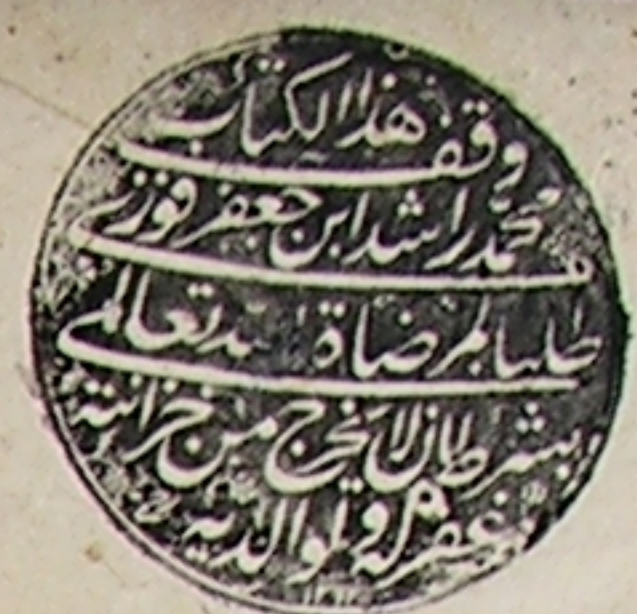 وقف هذا الكتاب
محمد راشد ابن جعفر فوزى
طلبا لمرضاة الله تعالى
بشرط ان لا يخرج من خزانته
غفر له و لوالديه